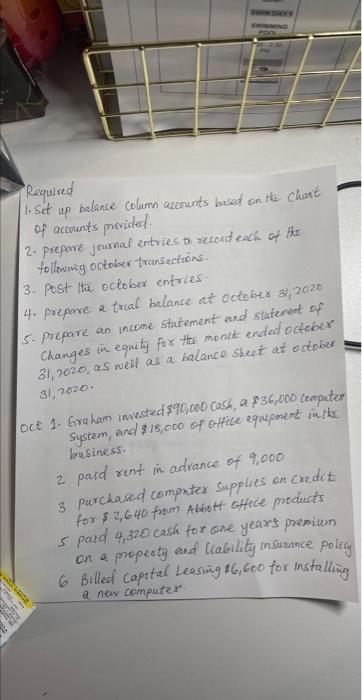 SWIM DAYS
SWIMMING
POOL
Required
1. Set up balance column accounts based on the chart
of accounts provided.
2. prepare journal entries to record each of the
following october transactions.
3. Post the october entries.
4. prepare a trial balance at october 31, 2020
5. prepare an income statement and statement of
Changes in equity for the month ended october
31, 2020, as well as a balance sheet at october
31, 2020.
oct 1. Graham invested $90,000 cash, a $36,000 computer
System, and $18,000 of office equipment in the
business.
2 paid rent in advance of 9,000
3 purchased computer supplies on credit
for $2,640 from Abbott office products
5 paid 4,320 cash for one year's premium
on a property and liability insurance policy
6 Billed Capital Leasing $6,600 for installing
a new computer.